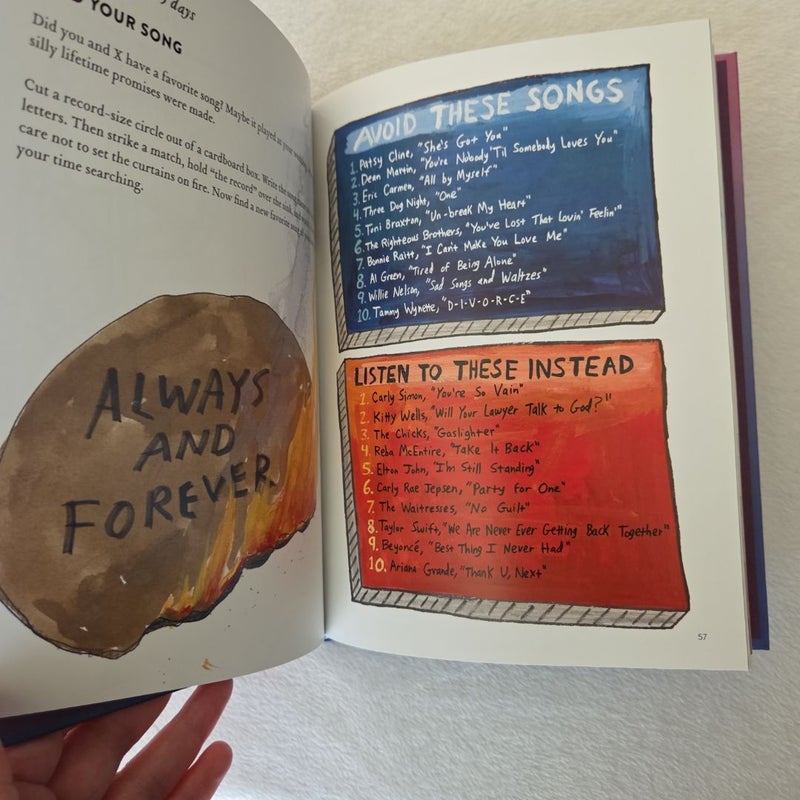 days
YOUR SONG
Did you and X have a favorite song? Maybe it played at your
silly lifetime promises were made.
Cut a record-size circle out of a cardboard box. Write the
letters. Then strike a match, hold "the record" over the sink,
care not to set the curtains on fire. Now find a new favorite song
your time searching.
ALWAYS
AND
FOREVER
AVOID THESE SONGS
1. Patsy Cline, "She's Got You"
2. Dean Martin, "You're Nobody 'Til Somebody Loves You"
3. Eric Carmen, "All by Myself"
4. Three Dog Night, "One"
5. Toni Braxton, "Un-break My Heart"
6. The Righteous Brothers, "You've Lost That Lovin' Feelin'"
7. Bonnie Raitt, "I Can't Make You Love Me"
8. Al Green, "Tired of Being Alone"
9. Willie Nelson, "Sad Songs and Waltzes"
10. Tammy Wynette, "D-I-V-O-R-C-E"
LISTEN TO THESE INSTEAD
1. Carly Simon, "You're So Vain"
2. Kitty Wells, "Will Your Lawyer Talk to God?"
3. The Chicks, "Gaslighter"
4. Reba McEntire, "Take It Back"
5. Elton John, "I'm Still Standing"
6. Carly Rae Jepsen, "Party for One"
7. The Waitresses, "No Guilt"
8. Taylor Swift, "We Are Never Ever Getting Back Together"
9. Beyoncé, "Best Thing I Never Had"
10. Ariana Grande, "Thank U, Next"
57